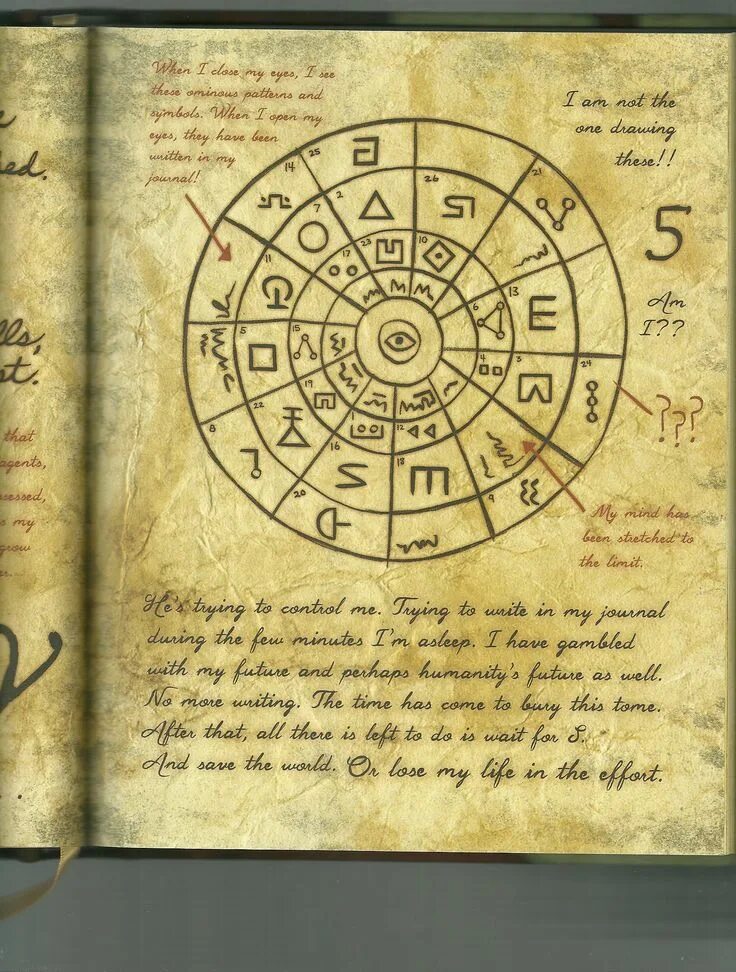 ed.
lls,
st.
that
agents,
ssessed,
s my
grow
er.
When I close my eyes, I see
these ominous patterns and
symbols. When I open my
eyes, they have been
written in my
journal!
I am not the
one drawing
these!!
5
Am
I??
14
25
2
26
21
7
17
23
10
11
6
13
5
15
4
3
24
8
22
19
1
12
16
18
9
20
???
My mind has
been stretched to
the limit.
He's trying to control me. Trying to write in my journal
during the few minutes I'm asleep. I have gambled
with my future and perhaps humanity's future as well.
No more writing. The time has come to bury this tome.
After that, all there is left to do is wait for S.
And save the world. Or lose my life in the effort.